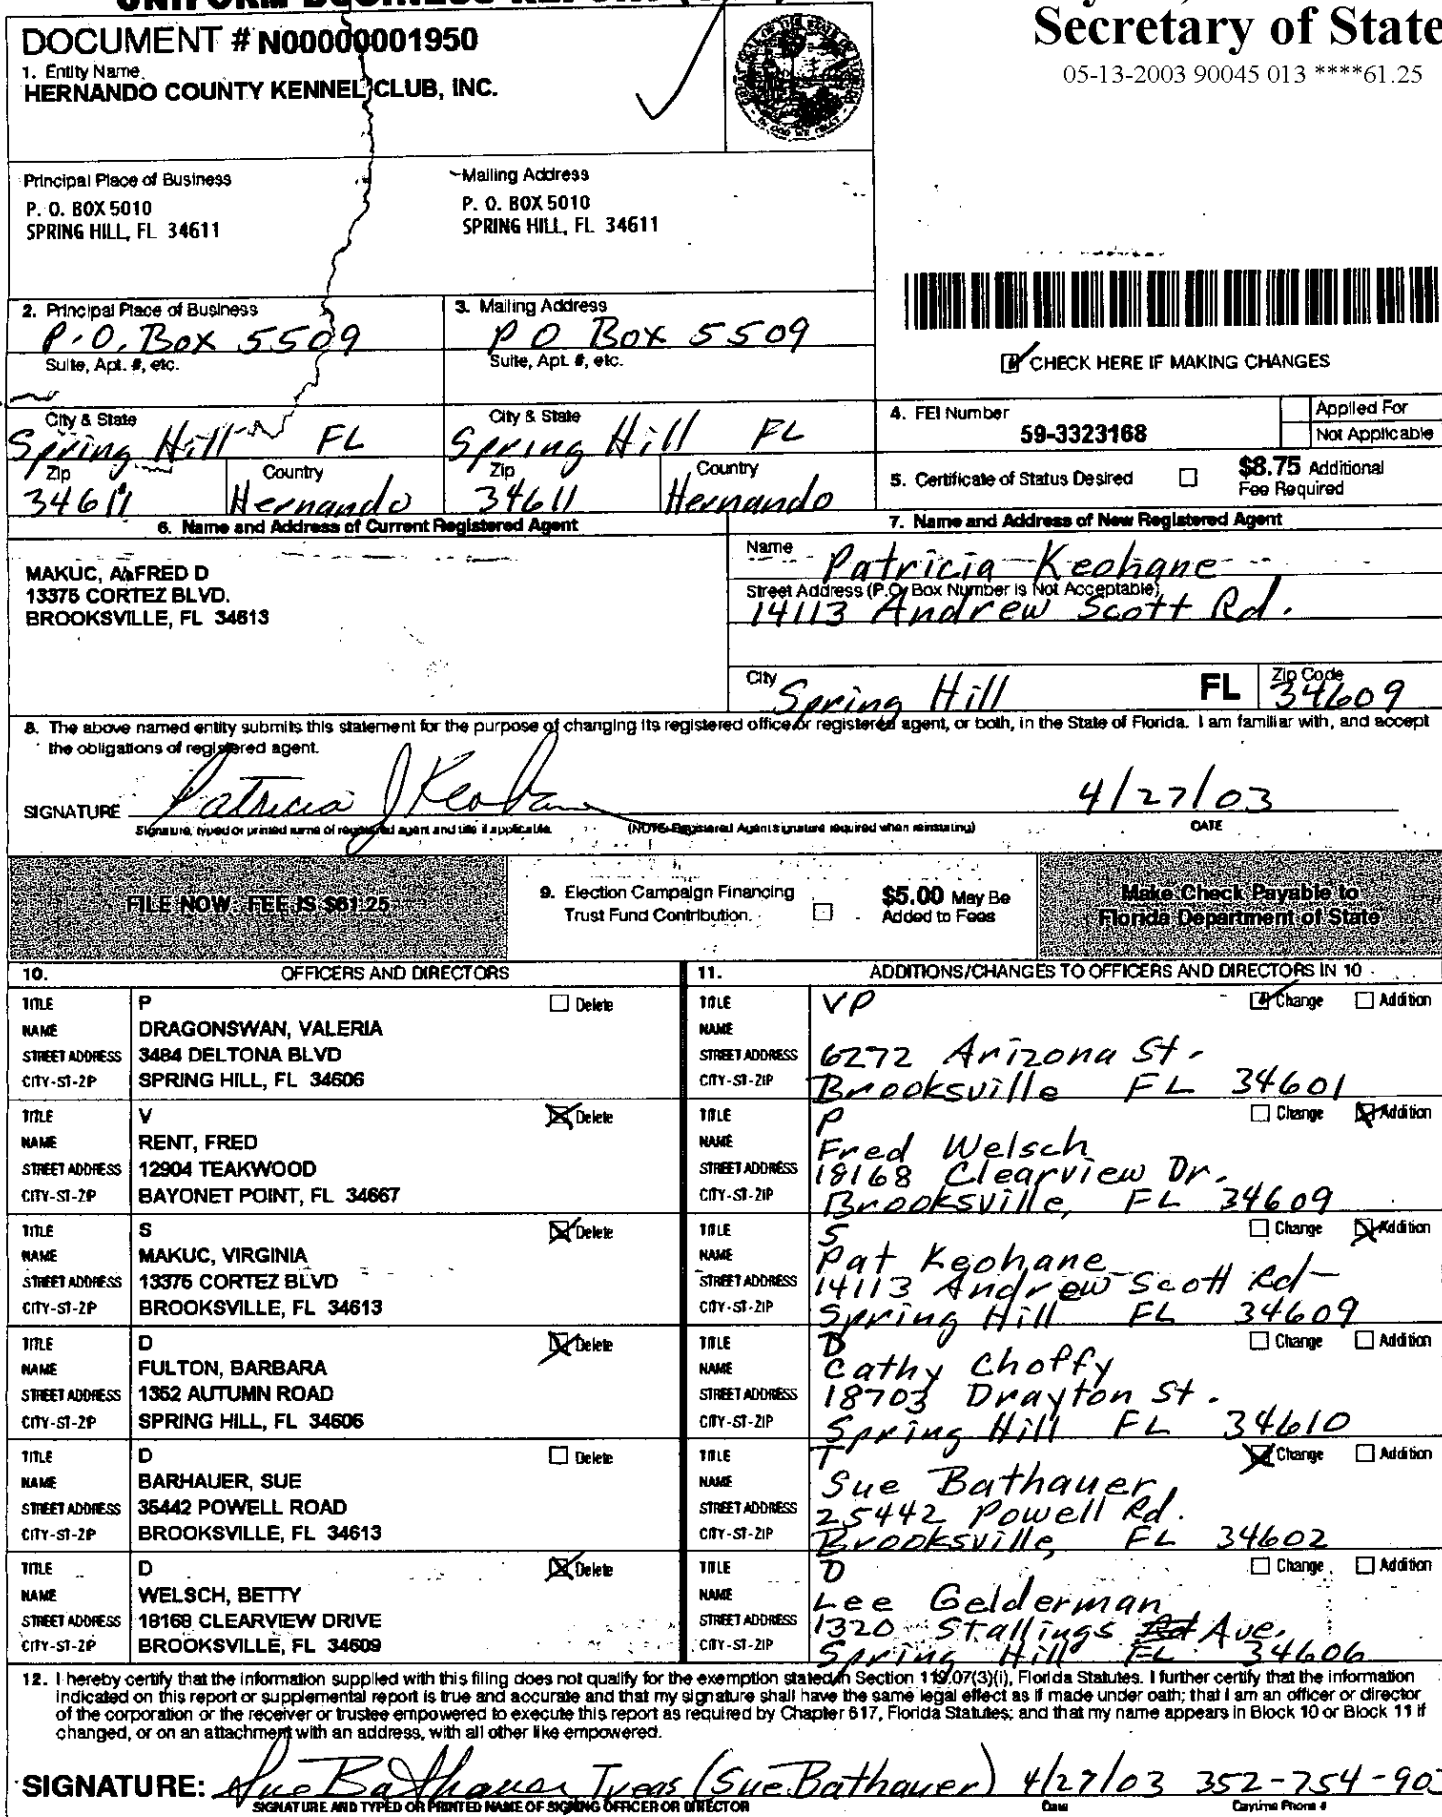 UNIFORM BUSINESS REPORT
Secretary of State
05-13-2003 90045 013 ****61.25
DOCUMENT # N00000001950
1. Entity Name
HERNANDO COUNTY KENNEL CLUB, INC.
Principal Place of Business
P. O. BOX 5010
SPRING HILL, FL 34611
Mailing Address
P. O. BOX 5010
SPRING HILL, FL 34611
2. Principal Place of Business
P.O. Box 5509
Suite, Apt. #, etc.
City & State
Spring Hill FL
Zip
34611
Country
Hernando
3. Mailing Address
P O Box 5509
Suite, Apt. #, etc.
City & State
Spring Hill FL
Zip
34611
Country
Hernando
CHECK HERE IF MAKING CHANGES
4. FEI Number
59-3323168
Applied For
Not Applicable
5. Certificate of Status Desired
$8.75 Additional
Fee Required
6. Name and Address of Current Registered Agent
MAKUC, ALFRED D
13375 CORTEZ BLVD.
BROOKSVILLE, FL 34613
7. Name and Address of New Registered Agent
Name
Patricia Keohane
Street Address (P.O. Box Number is Not Acceptable)
14113 Andrew Scott Rd.
City
Spring Hill
FL
Zip Code
34609
8. The above named entity submits this statement for the purpose of changing its registered office or registered agent, or both, in the State of Florida. I am familiar with, and accept
the obligations of registered agent.
SIGNATURE Patricia J Keohane
4/27/03
Signature, typed or printed name of registered agent and title if applicable.
(NOTE: Registered Agent signature required when reinstating)
DATE
FILE NOW. FEE IS $61.25
9. Election Campaign Financing
Trust Fund Contribution.
$5.00 May Be
Added to Fees
Make Check Payable to
Florida Department of State
10. OFFICERS AND DIRECTORS
TITLE P Delete
NAME DRAGONSWAN, VALERIA
STREET ADDRESS 3484 DELTONA BLVD
CITY-ST-ZIP SPRING HILL, FL 34606
TITLE V Delete
NAME RENT, FRED
STREET ADDRESS 12904 TEAKWOOD
CITY-ST-ZIP BAYONET POINT, FL 34667
TITLE S Delete
NAME MAKUC, VIRGINIA
STREET ADDRESS 13375 CORTEZ BLVD
CITY-ST-ZIP BROOKSVILLE, FL 34613
TITLE D Delete
NAME FULTON, BARBARA
STREET ADDRESS 1352 AUTUMN ROAD
CITY-ST-ZIP SPRING HILL, FL 34606
TITLE D Delete
NAME BARHAUER, SUE
STREET ADDRESS 35442 POWELL ROAD
CITY-ST-ZIP BROOKSVILLE, FL 34613
TITLE D Delete
NAME WELSCH, BETTY
STREET ADDRESS 18168 CLEARVIEW DRIVE
CITY-ST-ZIP BROOKSVILLE, FL 34609
11. ADDITIONS/CHANGES TO OFFICERS AND DIRECTORS IN 10
TITLE VP Change Addition
NAME
STREET ADDRESS 6272 Arizona St.
CITY-ST-ZIP Brooksville FL 34601
TITLE P Change Addition
NAME Fred Welsch
STREET ADDRESS 18168 Clearview Dr.
CITY-ST-ZIP Brooksville, FL 34609
TITLE S Change Addition
NAME Pat Keohane
STREET ADDRESS 14113 Andrew Scott Rd
CITY-ST-ZIP Spring Hill FL 34609
TITLE D Change Addition
NAME Cathy Choffy
STREET ADDRESS 18703 Drayton St.
CITY-ST-ZIP Spring Hill FL 34610
TITLE T Change Addition
NAME Sue Bathauer
STREET ADDRESS 25442 Powell Rd.
CITY-ST-ZIP Brooksville, FL 34602
TITLE D Change Addition
NAME Lee Gelderman
STREET ADDRESS 1320 Stallings Ave.
CITY-ST-ZIP Spring Hill FL 34606
12. I hereby certify that the information supplied with this filing does not qualify for the exemption stated in Section 119.07(3)(i), Florida Statutes. I further certify that the information
indicated on this report or supplemental report is true and accurate and that my signature shall have the same legal effect as if made under oath; that I am an officer or director
of the corporation or the receiver or trustee empowered to execute this report as required by Chapter 617, Florida Statutes; and that my name appears in Block 10 or Block 11 if
changed, or on an attachment with an address, with all other like empowered.
SIGNATURE: Sue Bathauer Treas (Sue Bathauer) 4/27/03 352-754-90
SIGNATURE AND TYPED OR PRINTED NAME OF SIGNING OFFICER OR DIRECTOR
Date
Daytime Phone #